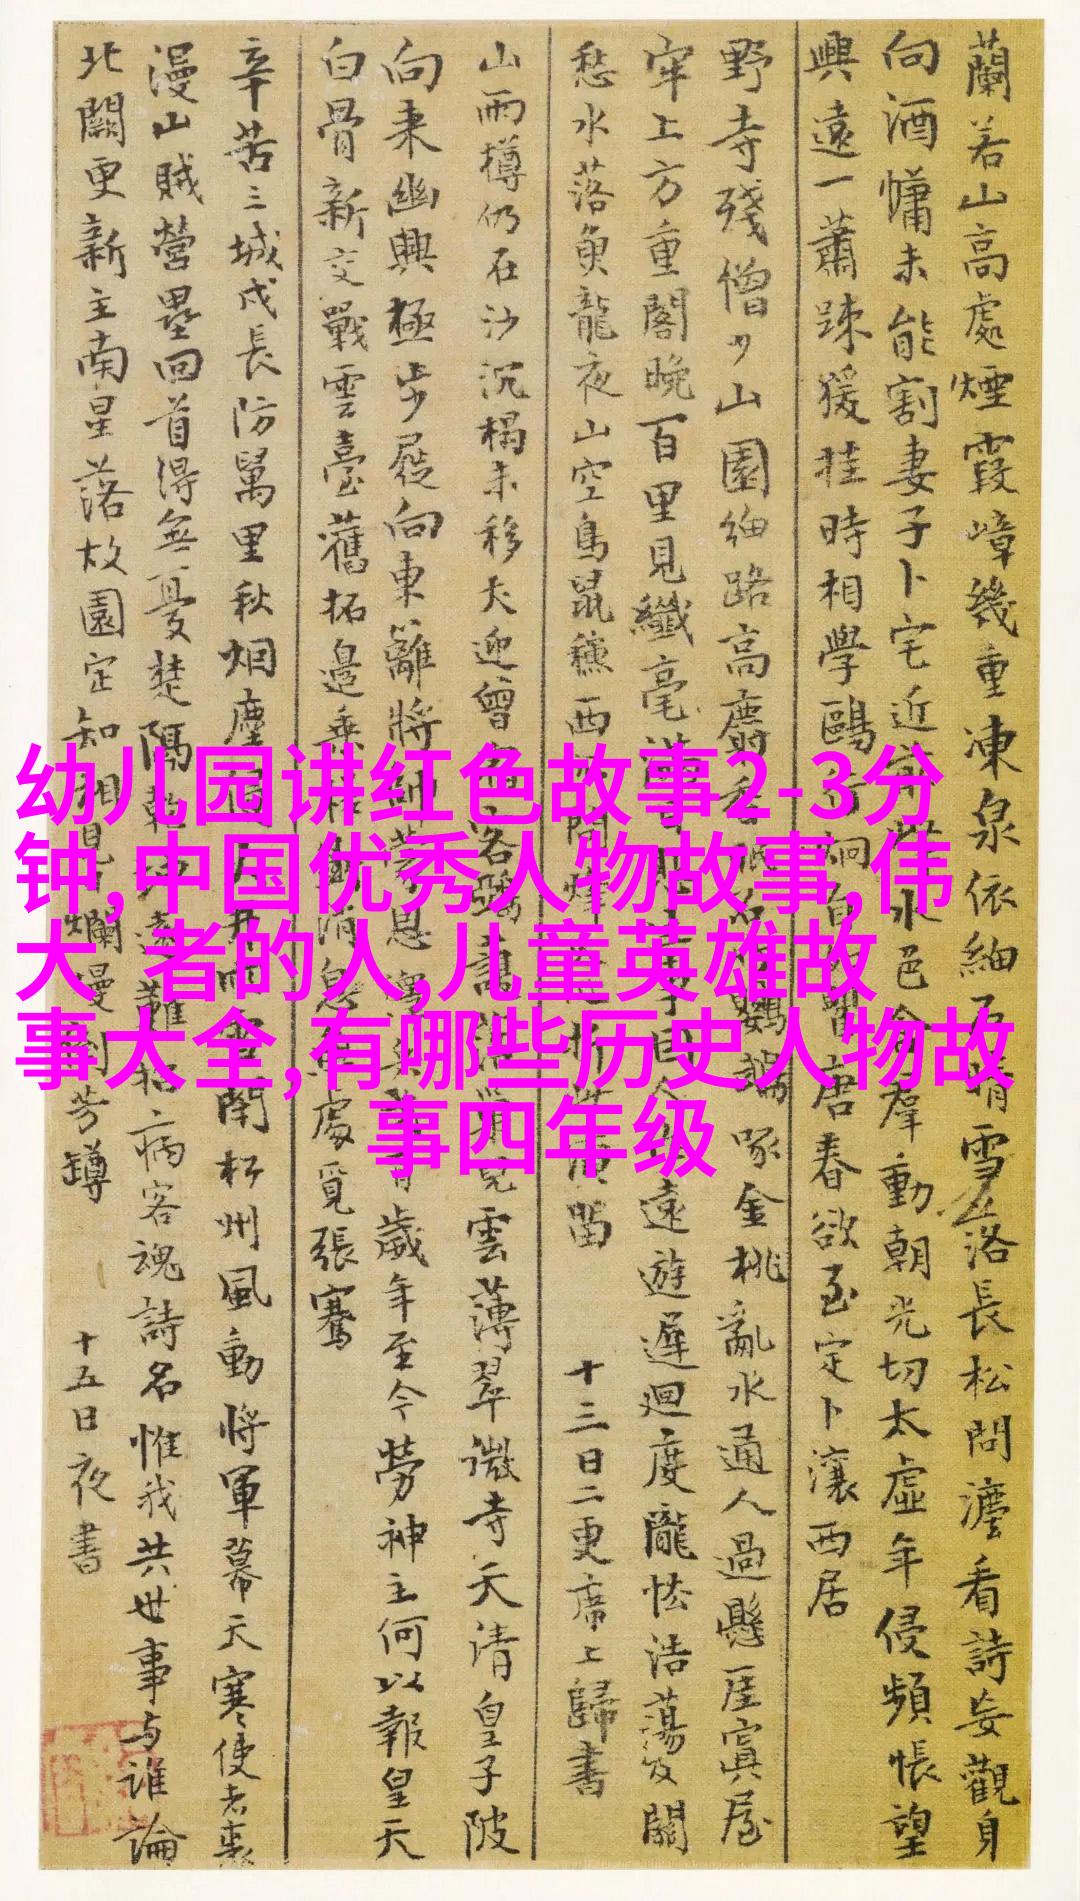 蘭若山高處煙霞嶂幾重凍泉依細石晴雪落長松問法看詩妄觀身
向酒慵未能割妻子卜宅近前峰水色含群動朝光切太虛年侵頻悵望
興遠一蕭踈猨挂時相學鷗行炯自如瞿唐春欲至定卜瀼西居
野寺殘僧少山園細路高麝香眠石竹鸚鵡啄金桃亂水通人過懸崖寘屋
牢上方重閣晚百里見纖毫
愁水落魚龍夜山空鳥鼠穐西
問烽火
留 十三日二更席上歸書
遠遊遲迴度隴怯浩蕩及關
山雨樽仍在沙沉榻未移犬迎曾
雲薄翠微寺天清皇子陂
向来幽興極步屧向東籬將帥蒙恩澤
歲年至今勞神主何以報皇天
白骨新交戰雲臺舊拓邊乘
消息
處覓張騫
辛苦三城戍長防萬里秋烟塵
閉杯州風動將軍幕天寒使者裘
漫山賊營壘回首得無憂楚隅乾坤遠難招病客魂詩名惟我共世事与誰論
北闕更新主南星落故園定知相見日爛漫倒芳罇 十五日夜書
幼儿园讲红色故事2-3分
钟,中国优秀人物故事,伟
大 者的人,儿童英雄故
事大全,有哪些历史人物故
事四年级